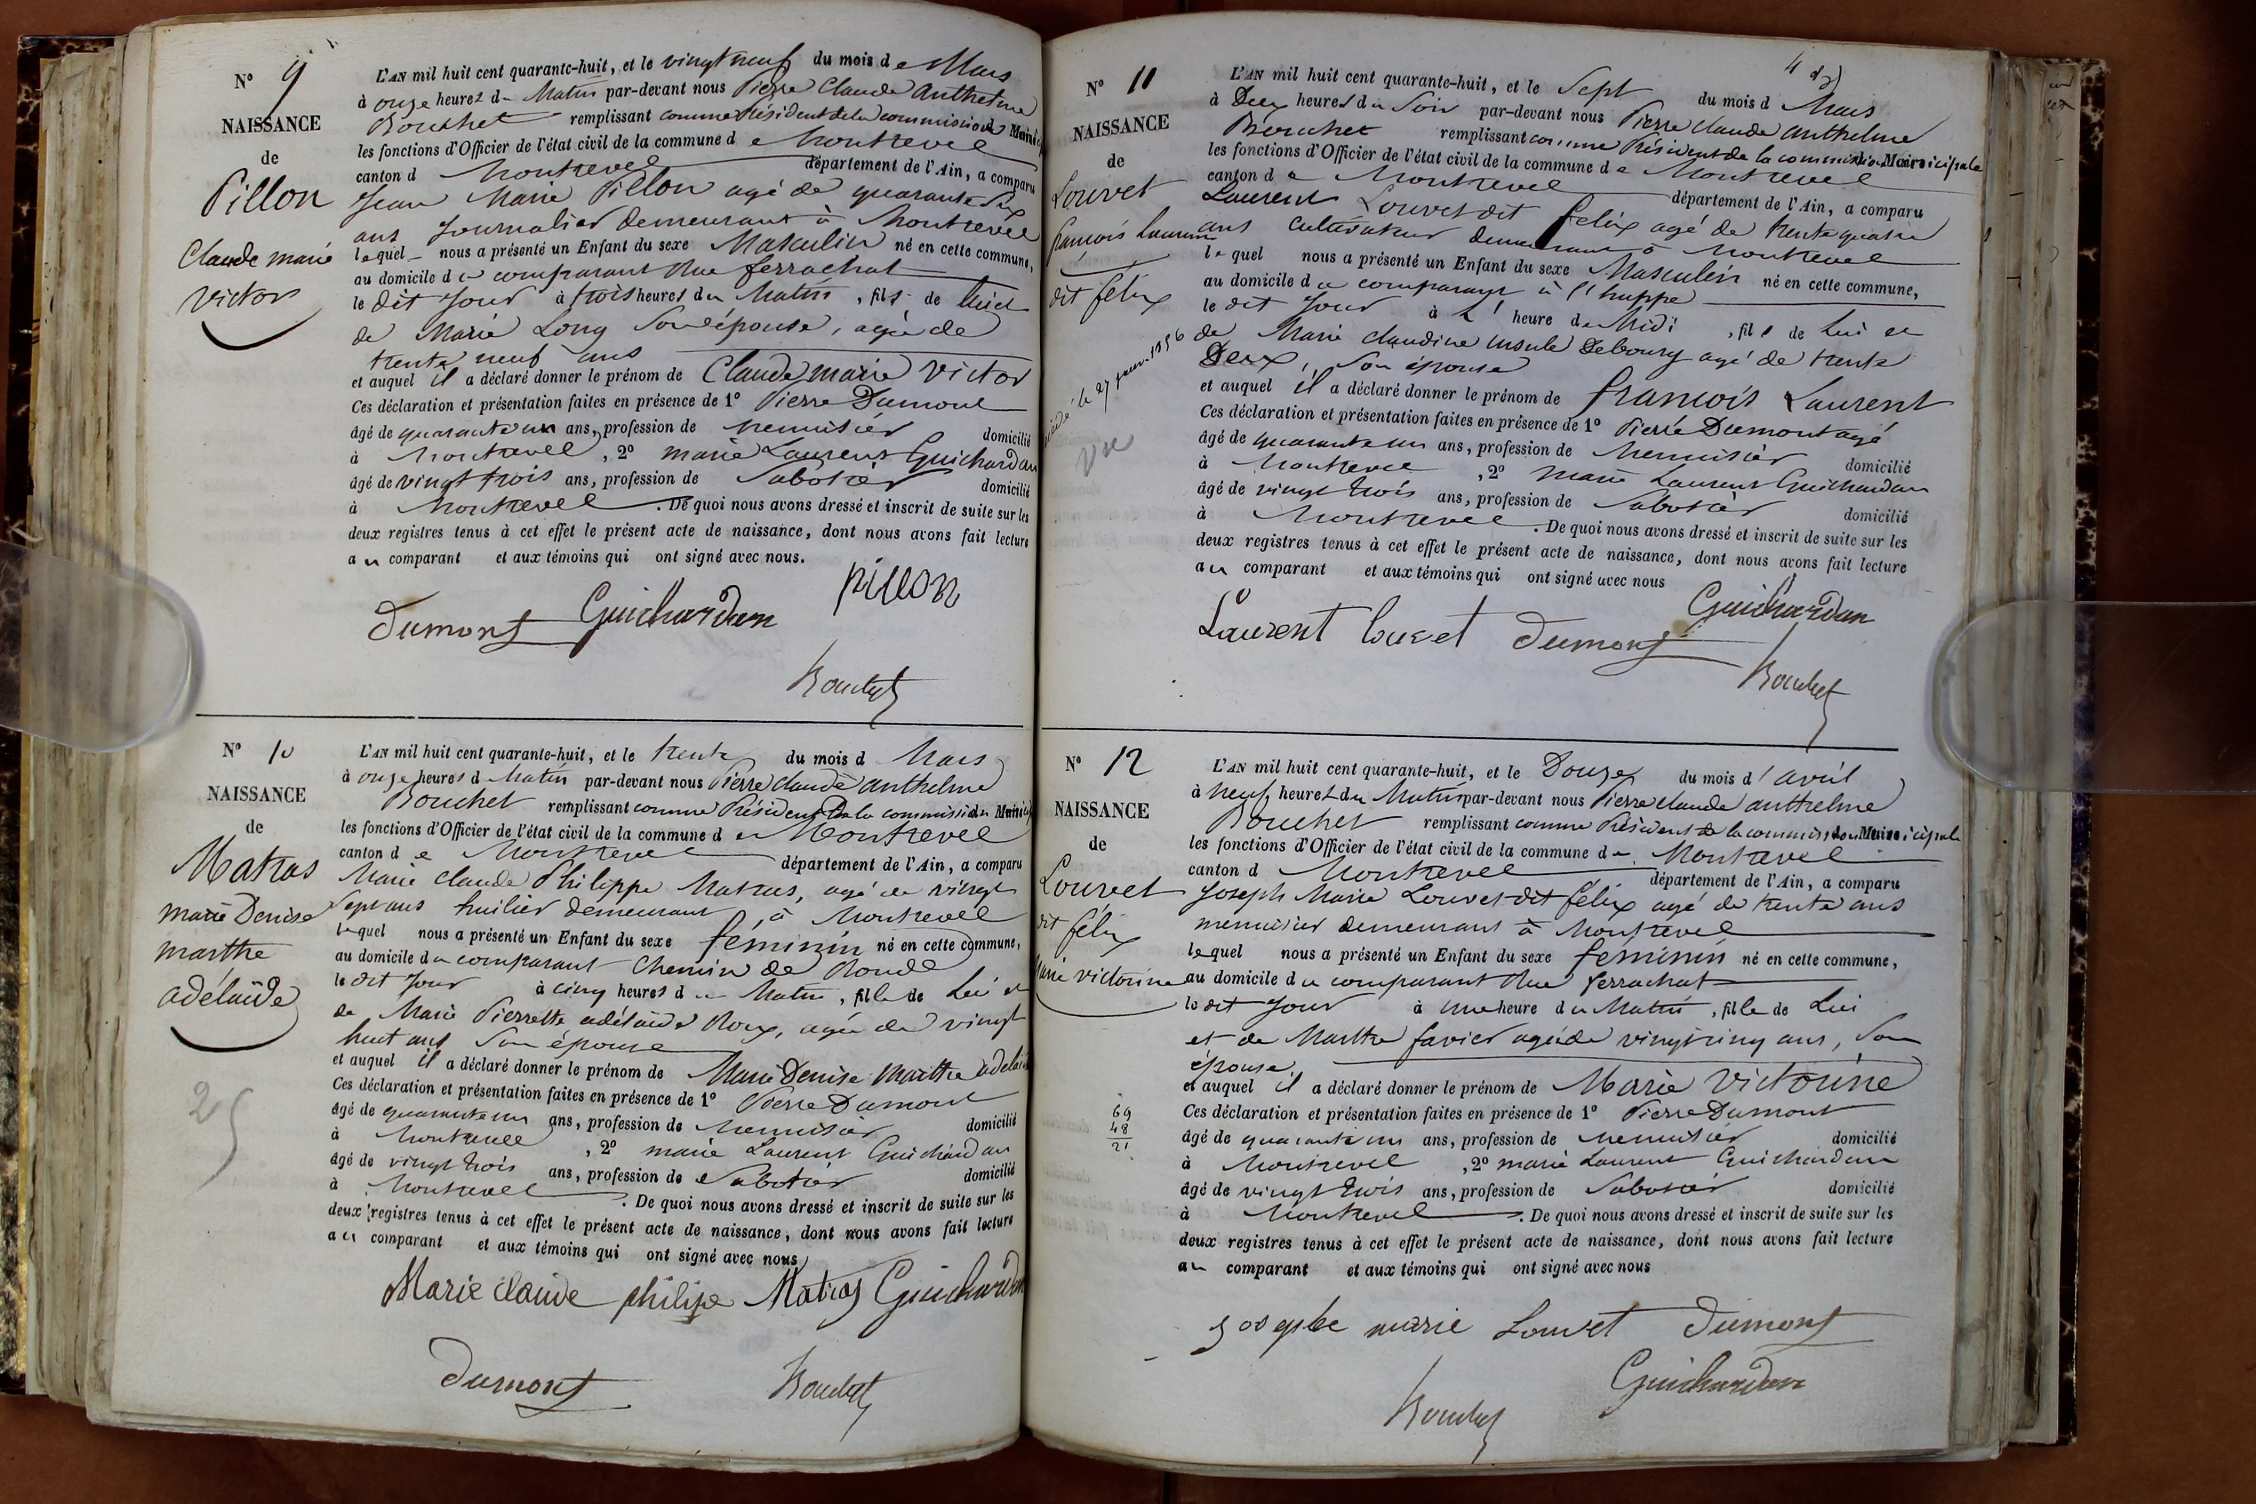 N° 9
NAISSANCE
de
Pillon
Claude marie
victor
L'AN mil huit cent quarante-huit, et le vingt neuf du mois de Mars
à onze heures du Matin par-devant nous Pierre Claude Anthelme
Bouchet remplissant comme Président de la commission Municip
les fonctions d'Officier de l'état civil de la commune de Montrevel
canton d Montrevel département de l'Ain, a comparu
Jean Marie Pillon agé de quarante
ans Journalier demeurant à Montrevel
lequel nous a présenté un Enfant du sexe Masculin né en cette commune,
au domicile du comparant Rue ferrachat
le dit jour à trois heures du Matin, fils de lui et
de Marie Long Son épouse, agée de
trente neuf ans
et auquel il a déclaré donner le prénom de Claude marie victor
Ces déclaration et présentation faites en présence de 1° Pierre Dumont
âgé de quarante un ans, profession de menuisier domicilié
à Montrevel, 2° marie Laurent Guichardan
âgé de vingt trois ans, profession de Sabotier domicilié
à Montrevel. De quoi nous avons dressé et inscrit de suite sur les
deux registres tenus à cet effet le présent acte de naissance, dont nous avons fait lecture
au comparant et aux témoins qui ont signé avec nous.
pillon
Dumont Guichardan
Bouchet
N° 10
NAISSANCE
de
Matras
marie Denise
marthe
adélaïde
25
L'AN mil huit cent quarante-huit, et le trente du mois d Mars
à onze heures du Matin par-devant nous Pierre claude anthelme
Bouchet remplissant comme Président de la commission Municip
les fonctions d'Officier de l'état civil de la commune de Montrevel
canton de Montrevel département de l'Ain, a comparu
Marie claude Philippe Matras, agé de vingt
sept ans tuilier demeurant à Montrevel
lequel nous a présenté un Enfant du sexe féminin né en cette commune,
au domicile du comparant Chemin de Ronde
le dit jour à cinq heures du Matin, fille de Lui et
de Marie Pierrette adélaïde Roux, agée de vingt
huit ans Son épouse
et auquel il a déclaré donner le prénom de Marie Denise Marthe adelai
Ces déclaration et présentation faites en présence de 1° Pierre Dumont
âgé de quarante un ans, profession de menuisier domicilié
à Montrevel, 2° marie Laurent Guichardan
âgé de vingt trois ans, profession de Sabotier domicilié
à Montrevel. De quoi nous avons dressé et inscrit de suite sur les
deux registres tenus à cet effet le présent acte de naissance, dont nous avons fait lecture
au comparant et aux témoins qui ont signé avec nous
Marie claude philipe Matras Guichardan
Dumont Bouchet
4
N° 11
NAISSANCE
de
Louvet
françois Laurent
dit félix
décédé le 27 janvier 1856
Vu
L'AN mil huit cent quarante-huit, et le Sept du mois d Mars
à Deux heures du Soir par-devant nous Pierre claude anthelme
Bouchet remplissant comme Président de la commission Municipale
les fonctions d'Officier de l'état civil de la commune de Montrevel
canton de Montrevel département de l'Ain, a comparu
Laurent Louvet dit félix agé de trente quatre
ans Cultivateur demeurant à Montrevel
lequel nous a présenté un Enfant du sexe Masculin né en cette commune,
au domicile du comparant à l'huppe
le dit jour à L' heure du Midi, fils de Lui et
de Marie claudine ursule Debourg agé de trente
Deux, Son épouse
et auquel il a déclaré donner le prénom de françois Laurent
Ces déclaration et présentation faites en présence de 1° Pierre Dumont agé
âgé de quarante un ans, profession de Menuisier domicilié
à Montrevel, 2° marie Laurent Guichardan
âgé de vingt trois ans, profession de Sabotier domicilié
à Montrevel. De quoi nous avons dressé et inscrit de suite sur les
deux registres tenus à cet effet le présent acte de naissance, dont nous avons fait lecture
au comparant et aux témoins qui ont signé avec nous
Guichardan
Laurent louvet Dumont
Bouchet
N° 12
NAISSANCE
de
Louvet
dit félix
Marie victorine
69
48
21
L'AN mil huit cent quarante-huit, et le Douze du mois d'avril
à neuf heures du Matin par-devant nous Pierre claude anthelme
Bouchet remplissant comme Président de la commission Municipale
les fonctions d'Officier de l'état civil de la commune de Montrevel
canton d Montrevel département de l'Ain, a comparu
Joseph Marie Louvet dit félix agé de trente ans
menuisier demeurant à Montrevel
lequel nous a présenté un Enfant du sexe féminin né en cette commune,
au domicile du comparant Rue ferrachat
le dit jour à une heure du Matin, fille de Lui
et de Marthe favier agée de vingt cinq ans, Son
épouse
et auquel il a déclaré donner le prénom de Marie Victorine
Ces déclaration et présentation faites en présence de 1° Pierre Dumont
âgé de quarante un ans, profession de menuisier domicilié
à Montrevel, 2° marie Laurent Guichardan
âgé de vingt trois ans, profession de Sabotier domicilié
à Montrevel. De quoi nous avons dressé et inscrit de suite sur les
deux registres tenus à cet effet le présent acte de naissance, dont nous avons fait lecture
au comparant et aux témoins qui ont signé avec nous
Josephe marie Louvet Dumont
Guichardan
Bouchet